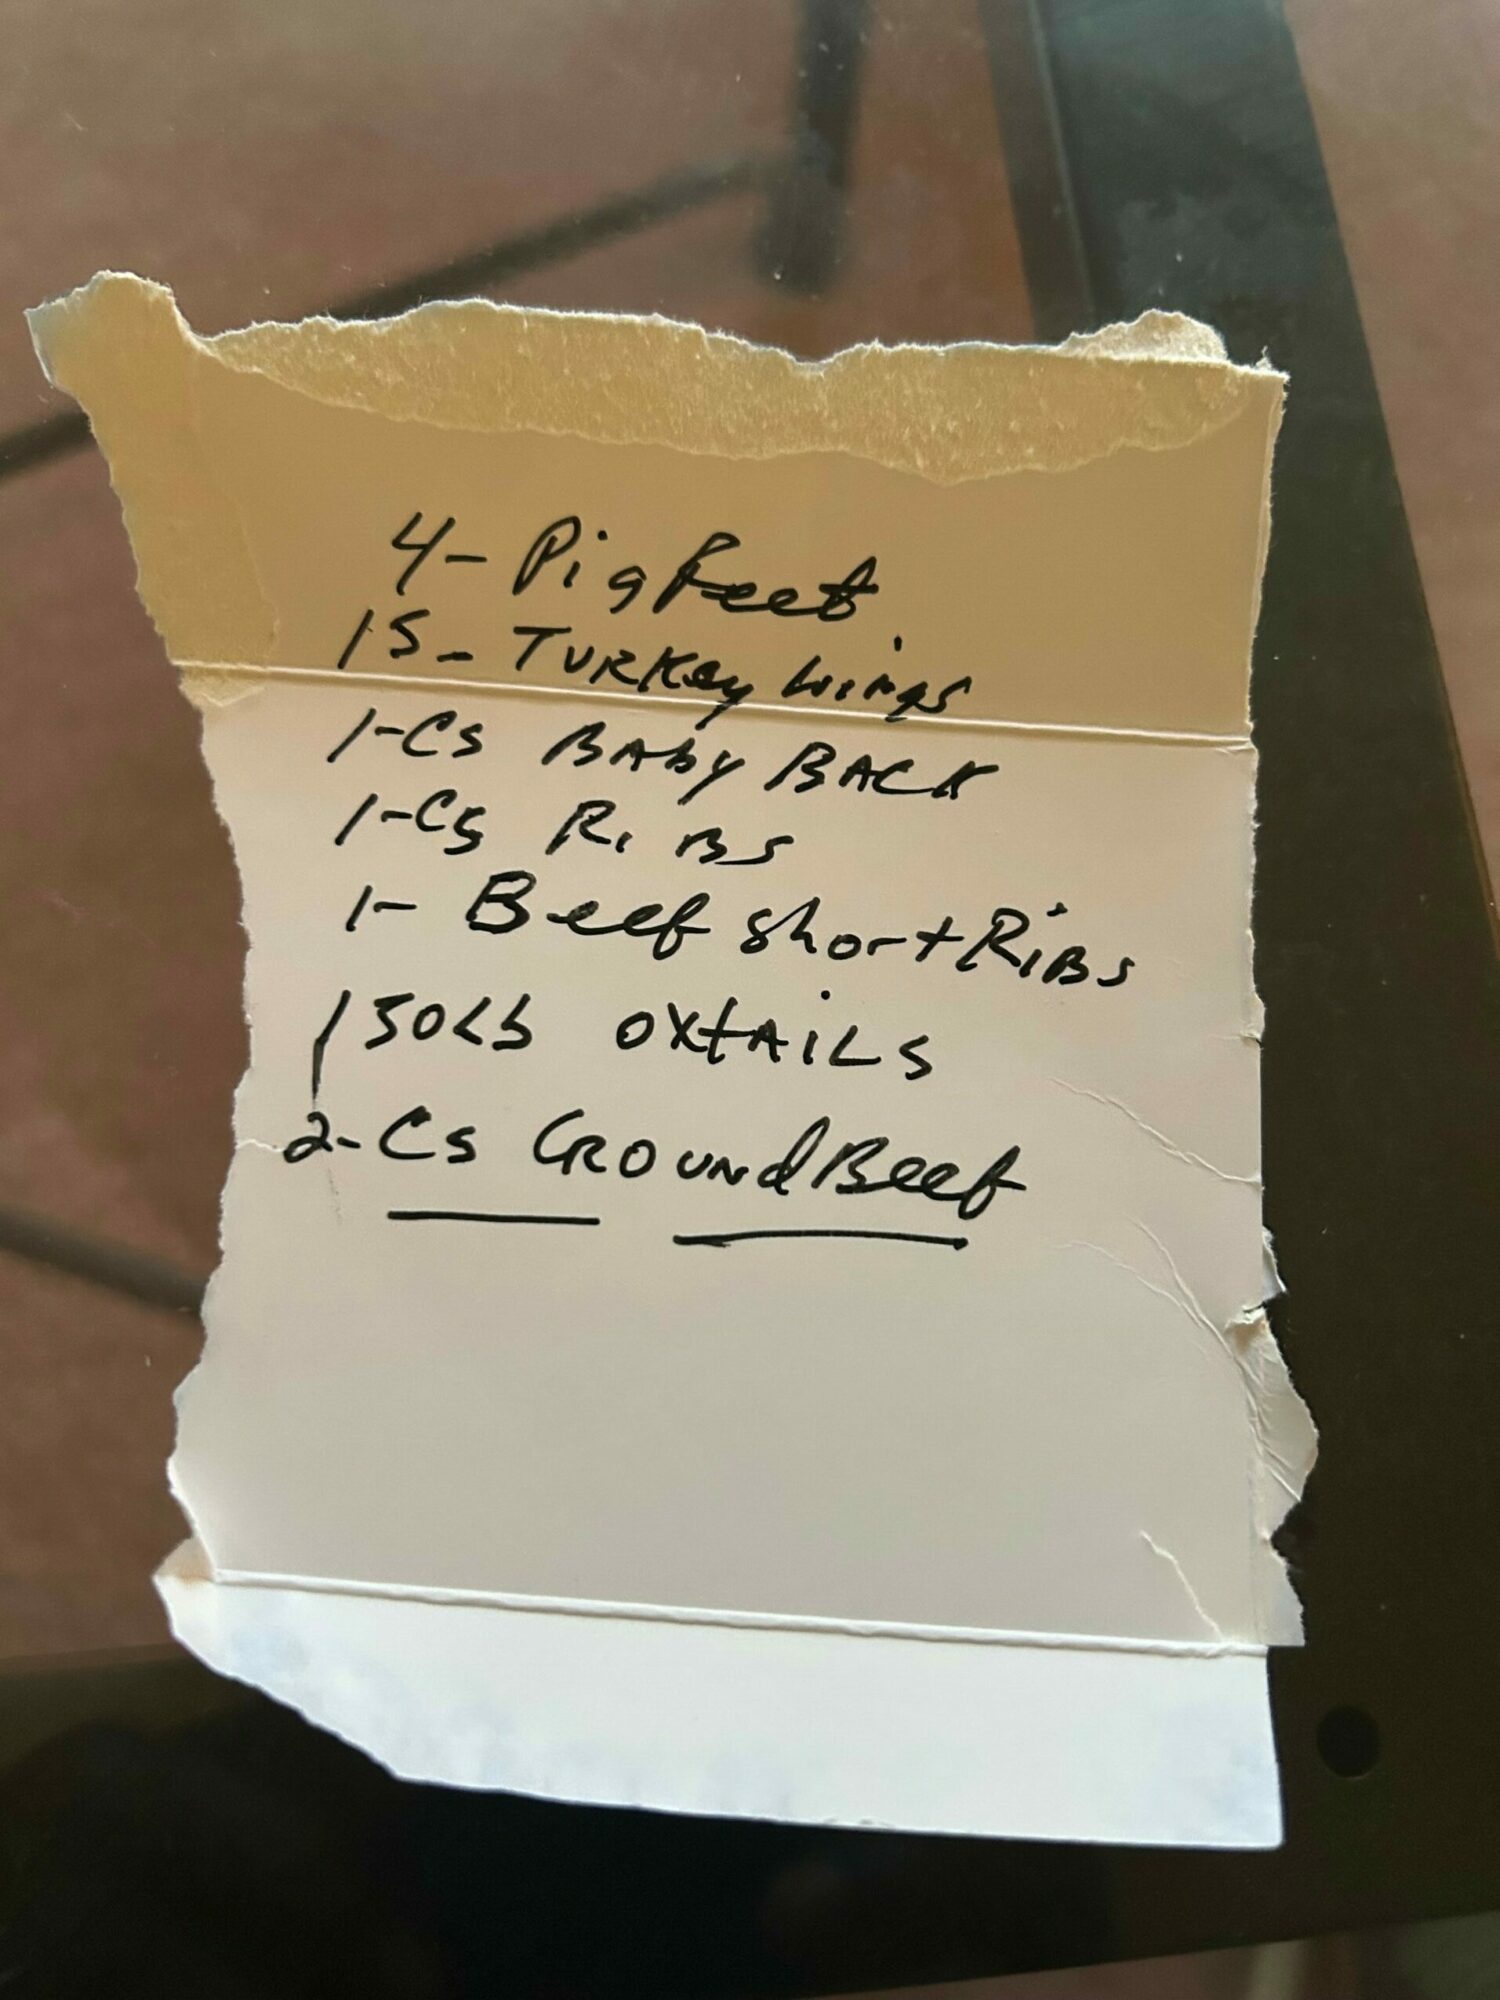 4- Pig Feet
15- Turkey Wings
1-Cs Baby Back
1-Cs Ribs
1- Beef Short Ribs
150Lb Oxtails
2-Cs Ground Beef